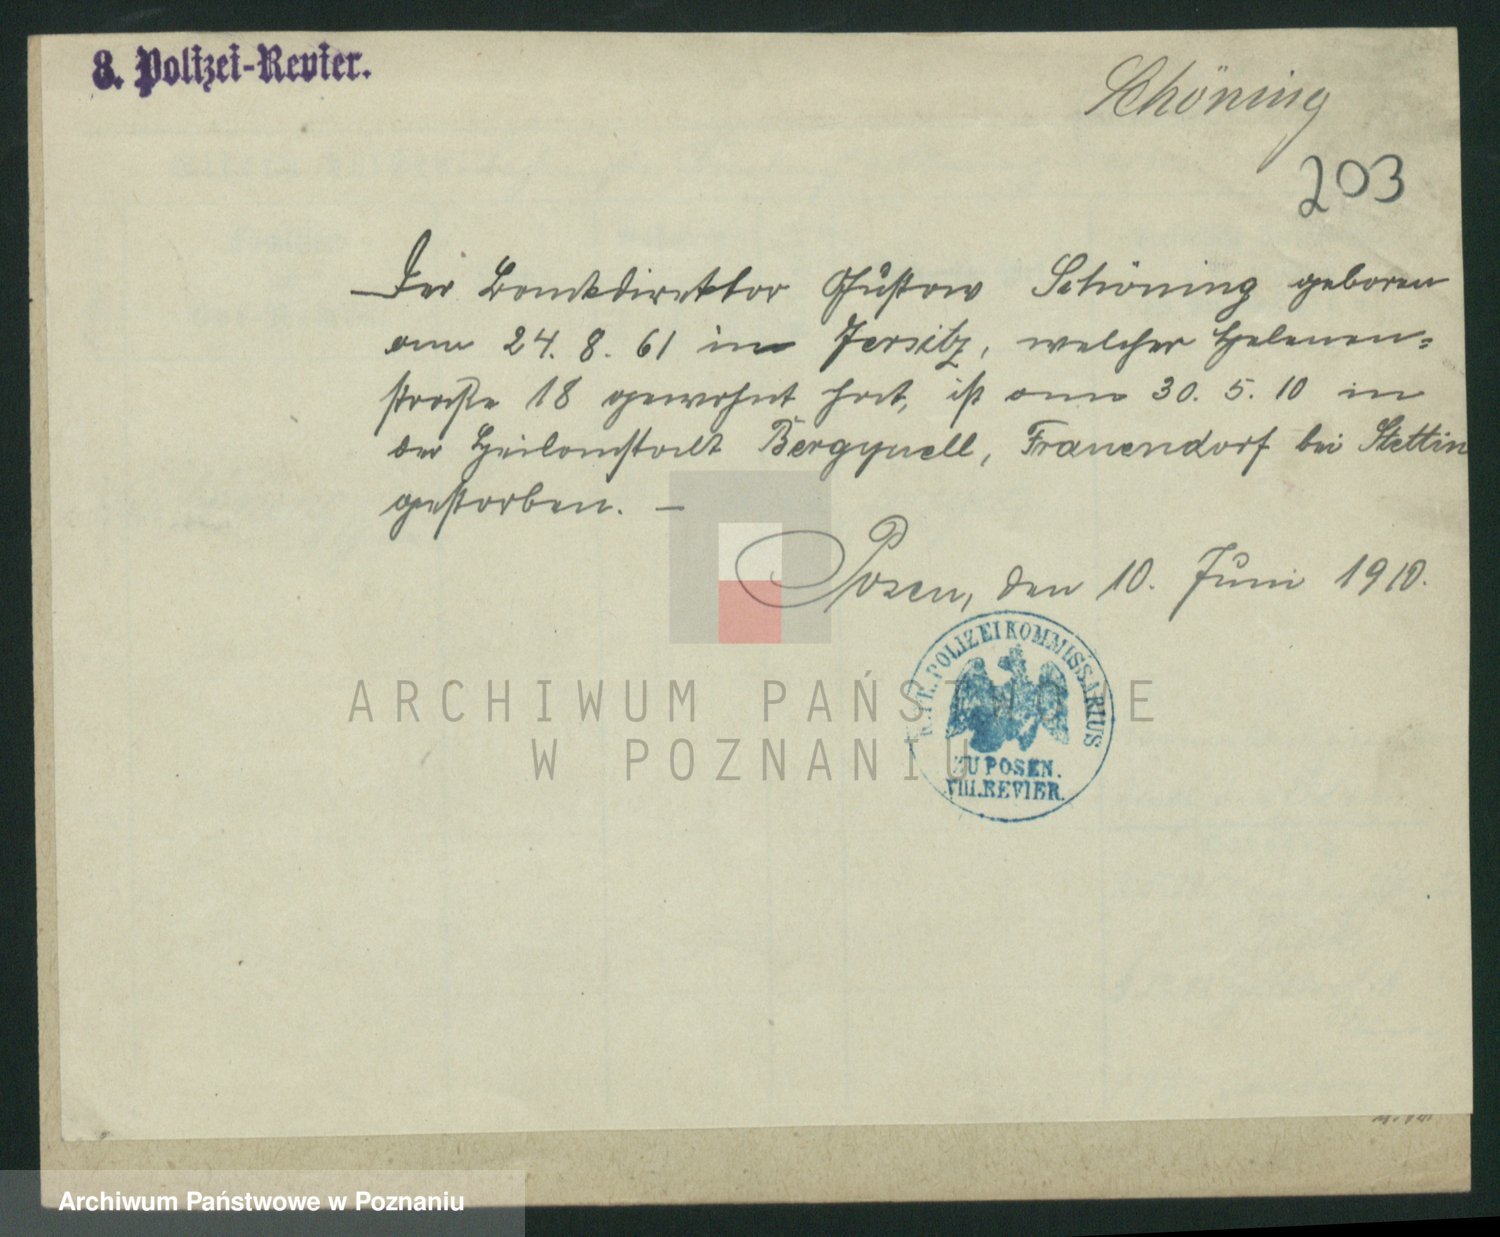 8. Polizei-Revier.
Schöning
203
Der Bankdirektor Gustav Schöning geboren
am 24. 8. 61 in Jersitz, welcher Helenen=
straße 18 gewohnt hat, ist am 30. 5. 10 in
der Heilanstalt Bergquell, Frauendorf bei Stettin
gestorben. —
Posen, den 10. Juni 1910.
POLIZEIKOMMISSARIUS
ZU POSEN.
VIII. REVIER.
ARCHIWUM PAŃSTWOWE
W POZNANIU
Archiwum Państwowe w Poznaniu